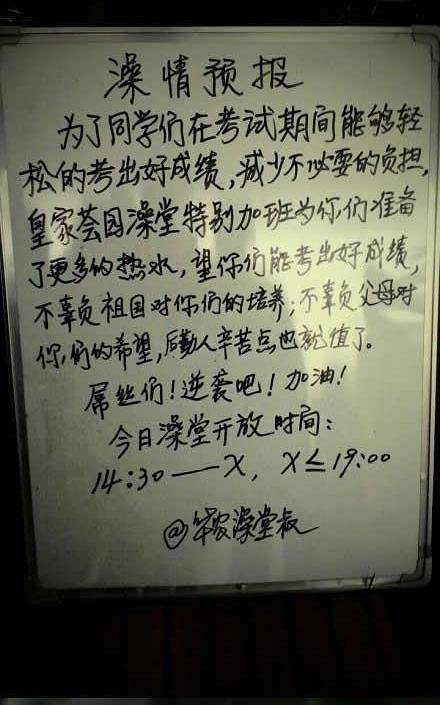 澡情预报
为了同学们在考试期间能够轻
松的考出好成绩,减少不必要的负担,
皇家荟园澡堂特别加班为你们准备
了更多的热水,望你们能考出好成绩,
不辜负祖国对你们的培养;不辜负父母对
你们的希望,后勤人辛苦点也就值了。
屌丝们!逆袭吧!加油!
今日澡堂开放时间:
14:30——X, X≤19:00
@华农澡堂叔